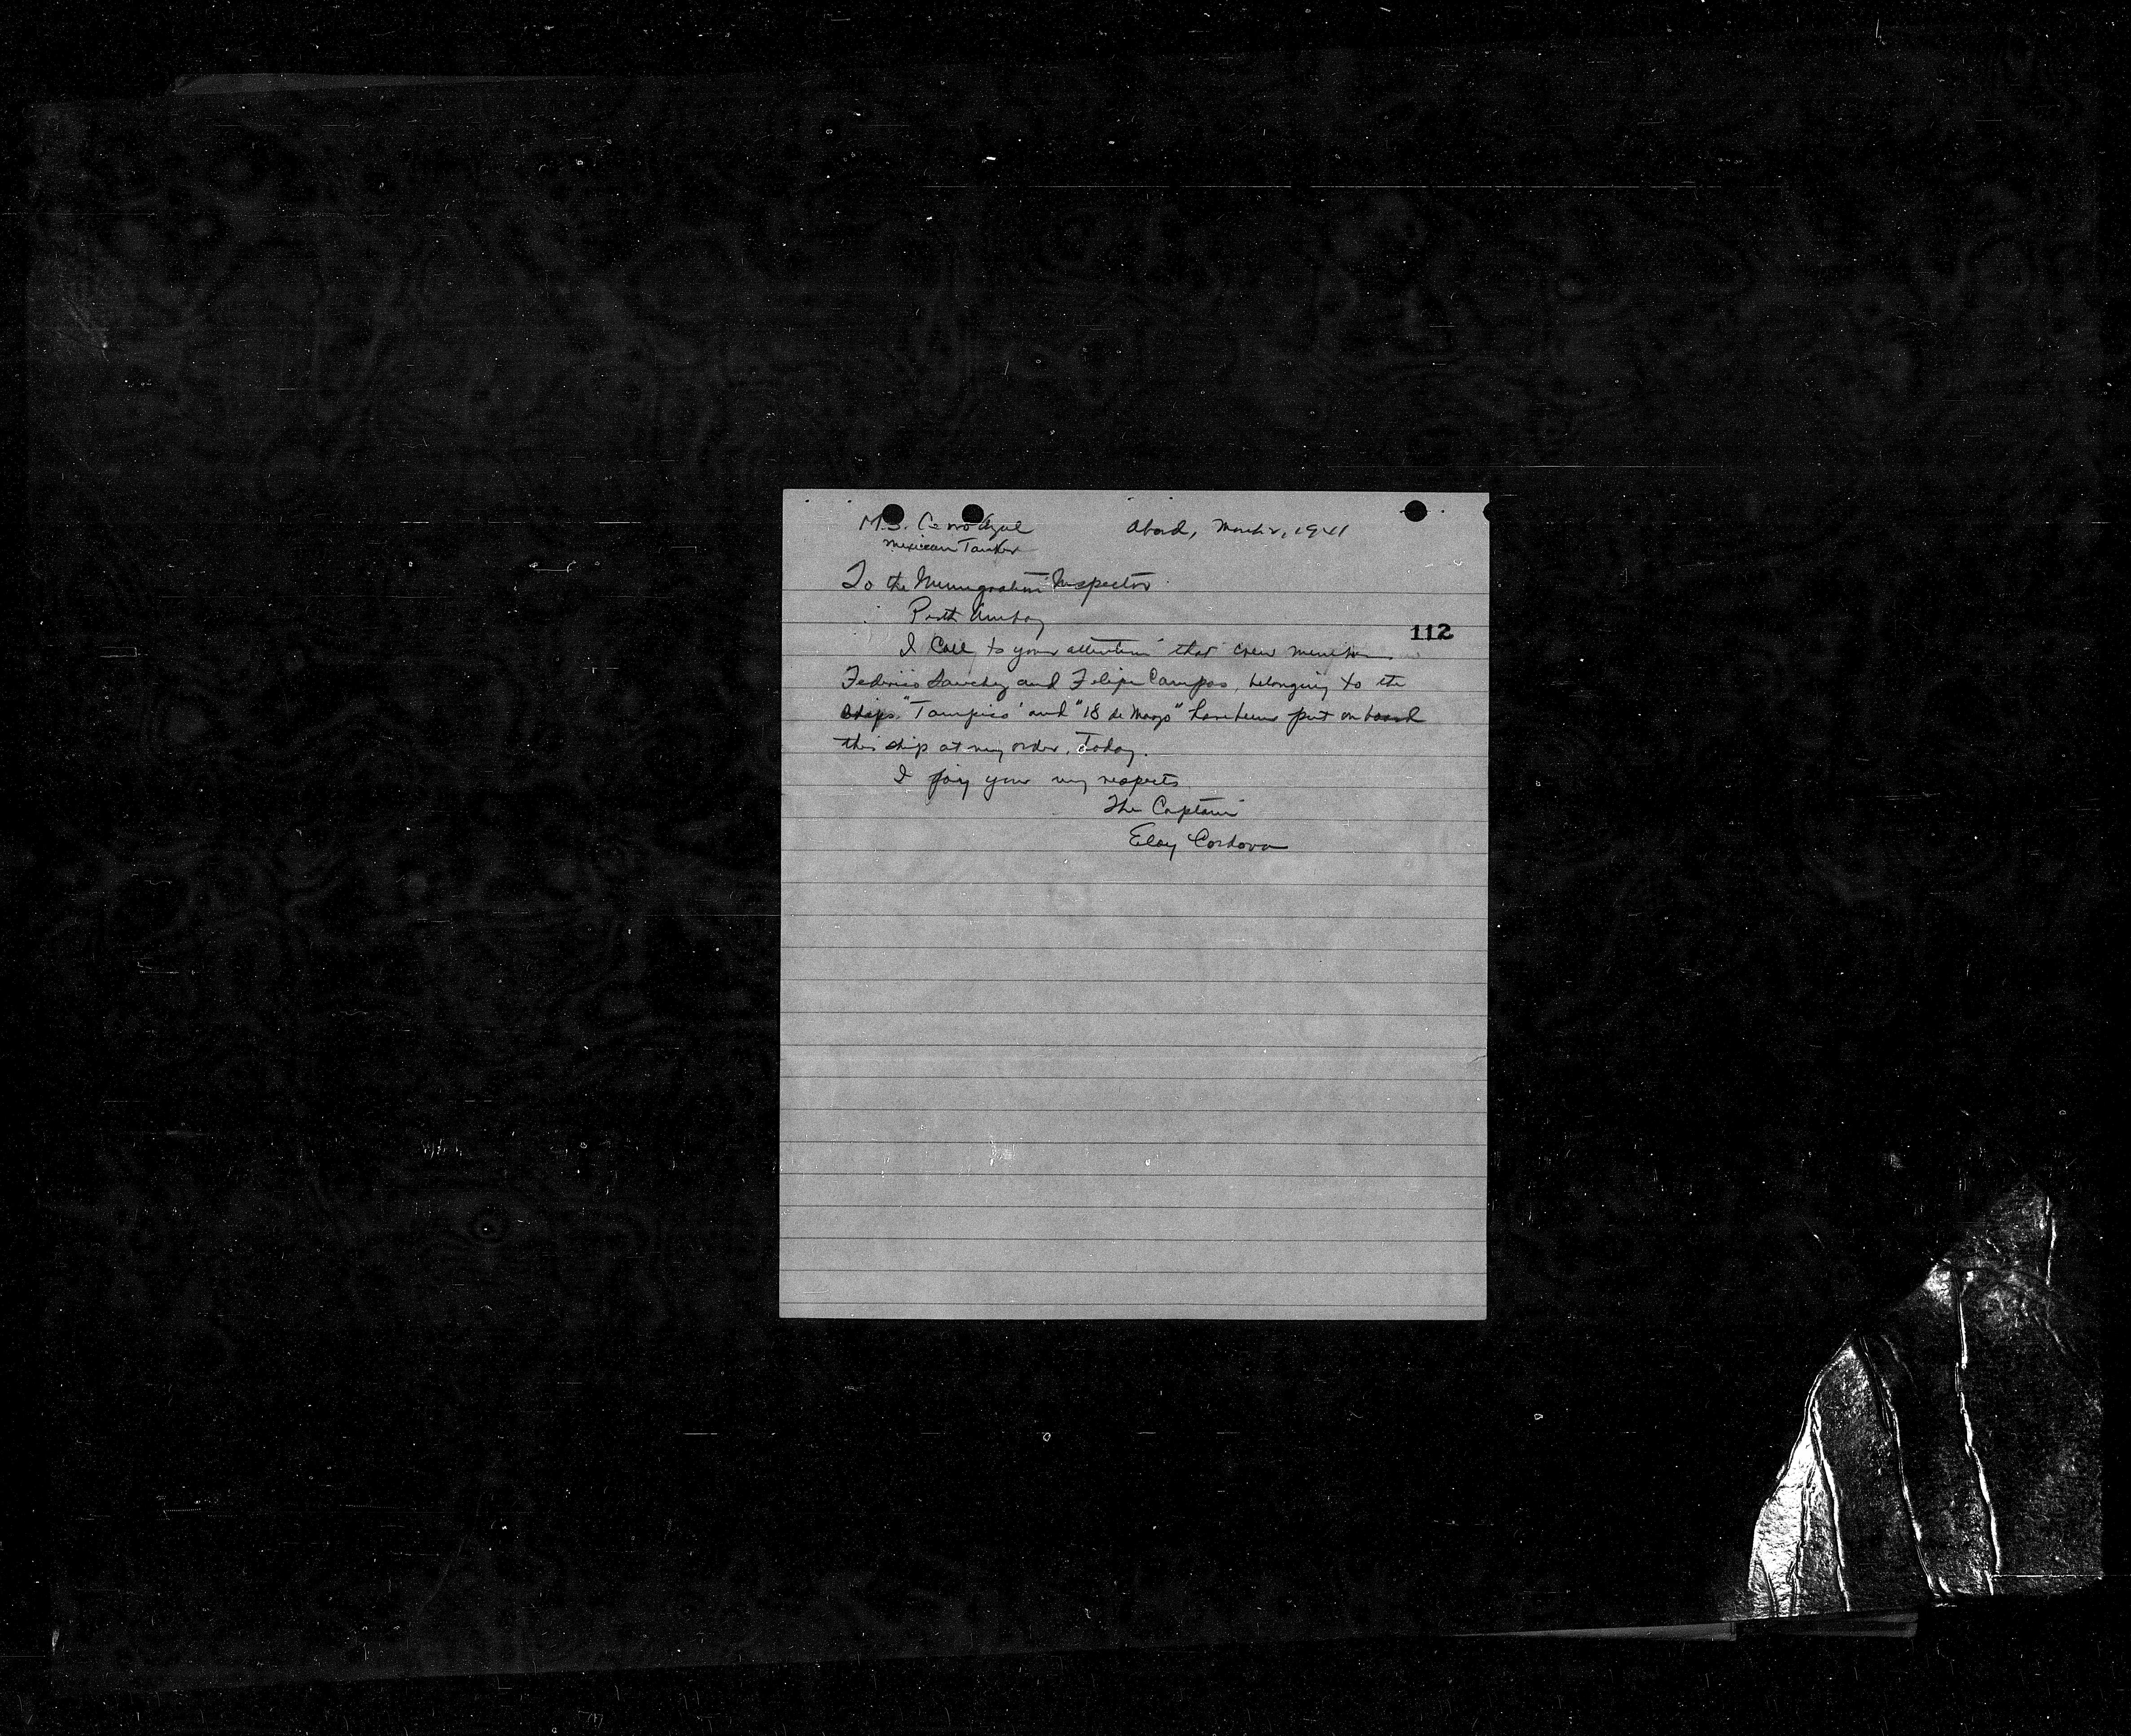 M.S. Cerro Azul
Abord, March 2, 1941
Mexican Tanker
To the Immigration Inspector
Perth Amboy
112
I Call to your attention that crew members
Federico Sanchez and Felipe Campos, belonging to the
ships "Tampico" and "18 de Marzo" have been put on board
this ship at my order, Today.
I pay you my respects
The Captain
Eloy Cordova